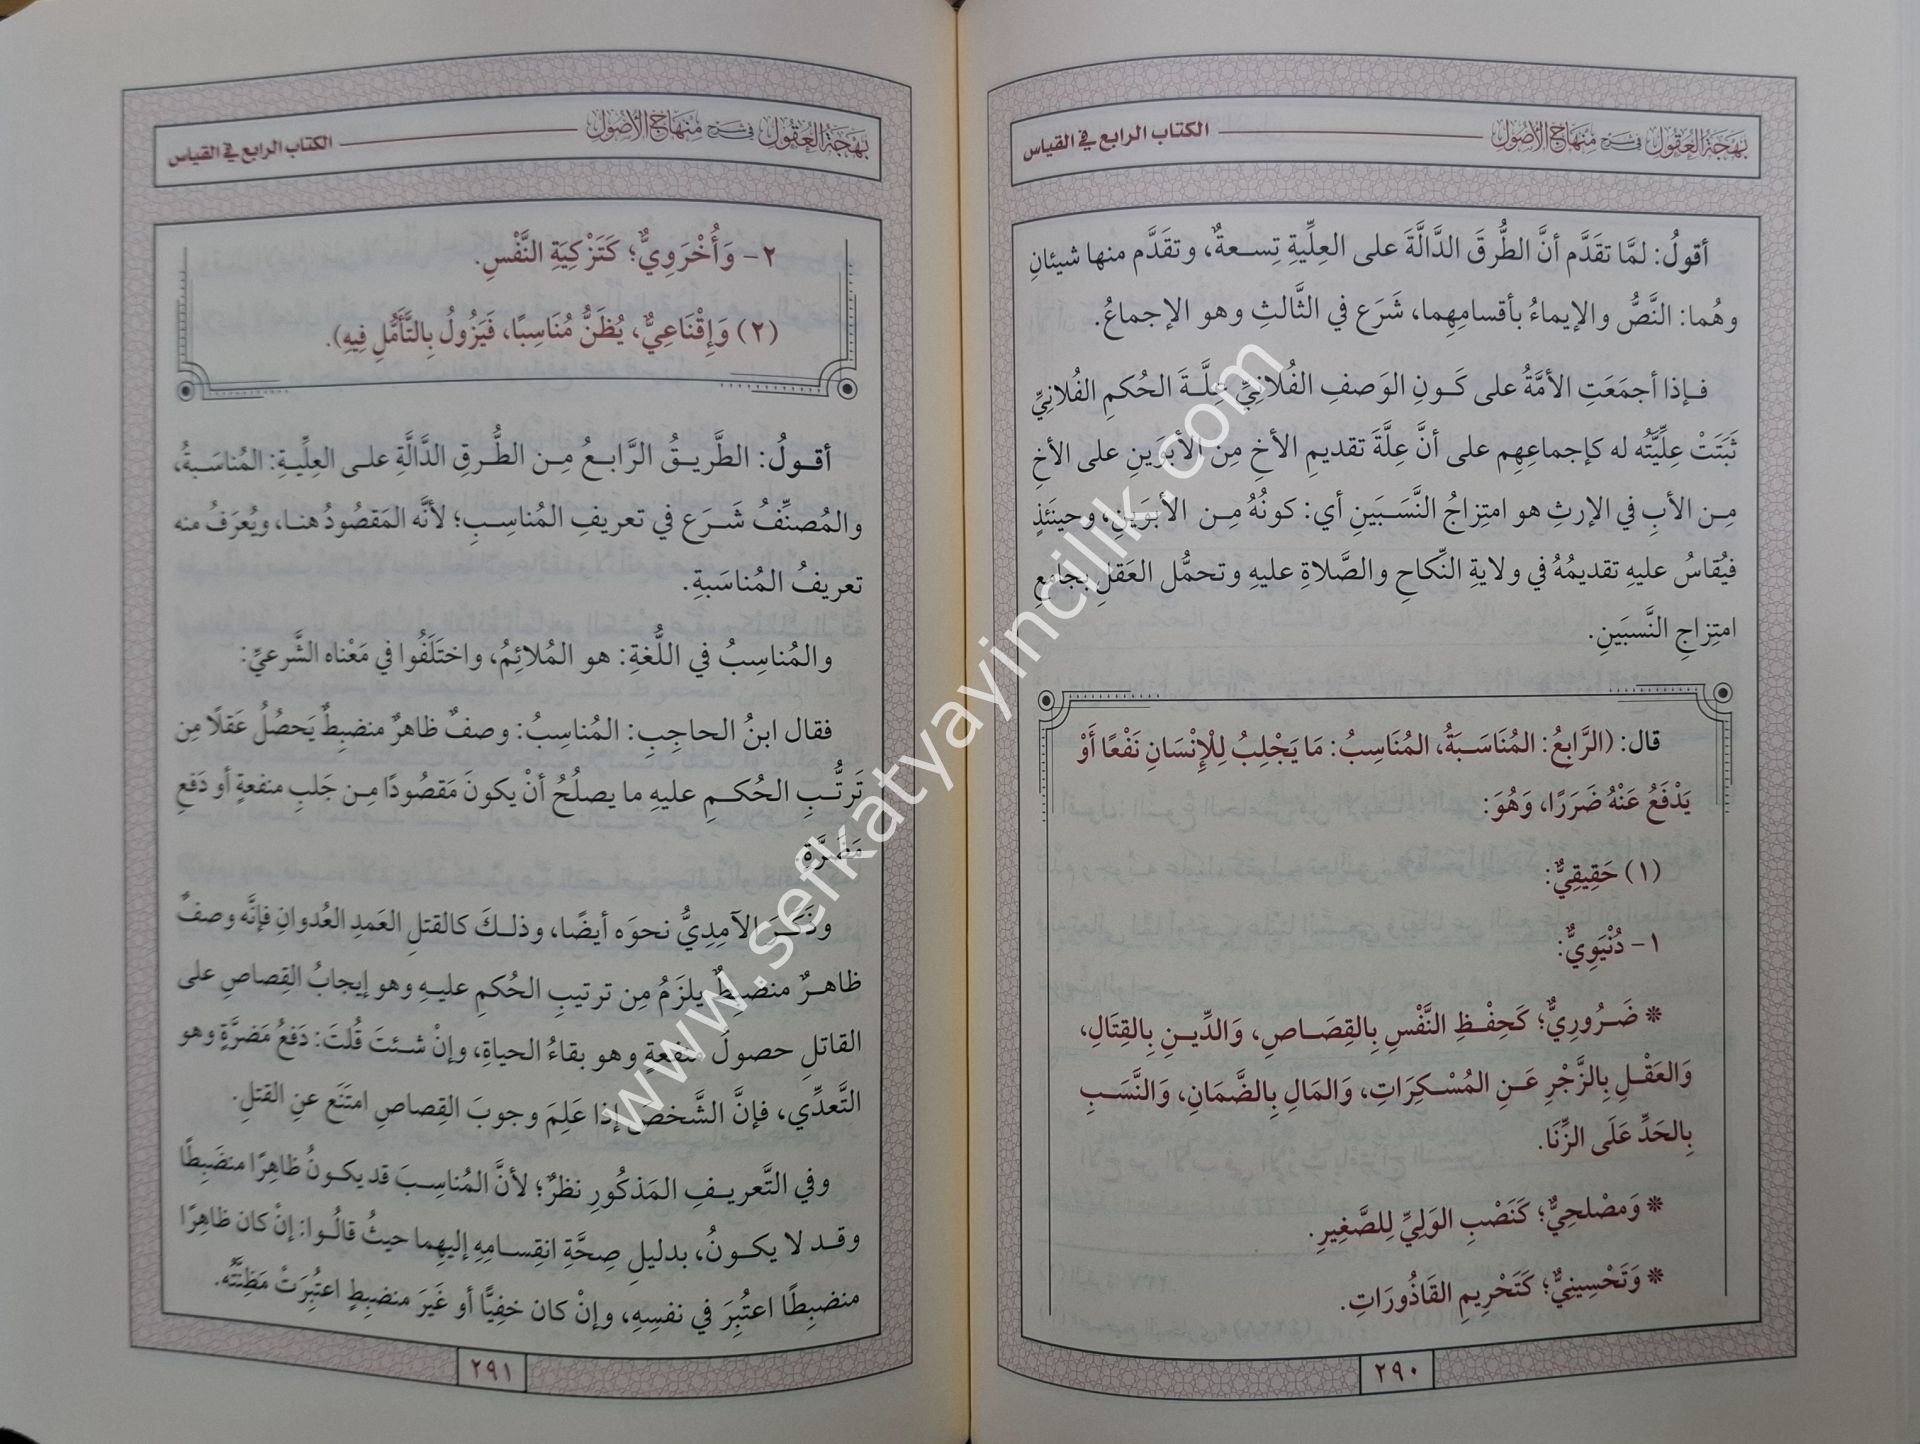 بَهْجَةُ العُقُولِ فِي شَرْحِ مِنْهَاجِ الأُصُولِ
الكتاب الرابع في القياس
أقولُ: لمَّا تقدَّم أنَّ الطُّرقَ الدَّالَّةَ على العِلِّيةِ تِسعةٌ، وتقدَّم منها شيئانِ
وهُما: النَّصُّ والإيماءُ بأقسامِهِما، شَرَع في الثَّالثِ وهو الإجماعُ.
فإذا أجمَعَتِ الأمَّةُ على كَونِ الوَصفِ الفُلانِيِّ عِلَّةَ الحُكمِ الفُلانِيِّ
ثَبَتَتْ عِلِّيَّتُه له كإجماعِهِم على أنَّ عِلَّةَ تقديمِ الأخِ مِنَ الأبوَينِ على الأخِ
مِن الأبِ في الإرثِ هو امتِزاجُ النَّسَبَينِ أي: كونُهُ مِن الأبَوَينِ، وحينَئذٍ
فيُقاسُ عليهِ تقديمُهُ في ولايةِ النِّكاحِ والصَّلاةِ عليهِ وتحمُّل العَقلِ بجامعِ
امتِزاجِ النَّسبَينِ.
قال: (الرَّابِعُ: المُنَاسَبَةُ، المُنَاسِبُ: مَا يَجْلِبُ لِلْإِنْسَانِ نَفْعًا أَوْ
يَدْفَعُ عَنْهُ ضَرَرًا، وَهُوَ:
(١) حَقِيقِيٌّ:
١- دُنْيَوِيٌّ:
* ضَرُورِيٌّ؛ كَحِفْظِ النَّفْسِ بِالقِصَاصِ، وَالدِّينِ بِالقِتَالِ،
وَالعَقْلِ بِالزَّجْرِ عَنِ المُسْكِرَاتِ، وَالمَالِ بِالضَّمَانِ، وَالنَّسَبِ
بِالحَدِّ عَلَى الزِّنَا.
* وَمَصْلحِيٌّ؛ كَنَصْبِ الوَلِيِّ لِلصَّغِيرِ.
* وَتَحْسِينِيٌّ؛ كَتَحْرِيمِ القَاذُورَاتِ.
٢٩٠
بَهْجَةُ العُقُولِ فِي شَرْحِ مِنْهَاجِ الأُصُولِ
الكتاب الرابع في القياس
٢- وَأُخْرَوِيٌّ؛ كَتَزْكِيَةِ النَّفْسِ.
(٢) وَإِقْنَاعِيٌّ، يُظَنُّ مُنَاسِبًا، فَيَزُولُ بِالتَّأَمُّلِ فِيهِ).
أقولُ: الطَّريقُ الرَّابعُ مِن الطُّرقِ الدَّالَّةِ على العِلِّيةِ: المُناسَبةُ،
والمُصنِّفُ شَرَع في تعريفِ المُناسِبِ؛ لأنَّه المَقصُودُ هنا، ويُعرَفُ منه
تعريفُ المُناسَبةِ.
والمُناسِبُ في اللُّغةِ: هو المُلائِمُ، واختَلَفُوا في مَعْناه الشَّرعيِّ:
فقال ابنُ الحاجِبِ: المُناسِبُ: وصفٌ ظاهرٌ منضبِطٌ يَحصُلُ عَقلًا مِن
تَرتُّبِ الحُكمِ عليهِ ما يصلُحُ أنْ يكونَ مَقصُودًا مِن جَلبِ منفعةٍ أو دَفعِ
مَضرَّةٍ.
وذَكَرَ الآمِدِيُّ نحوَه أيضًا، وذلكَ كالقتلِ العَمدِ العُدوانِ فإنَّه وصفٌ
ظاهرٌ منضبِطٌ يلزَمُ مِن ترتيبِ الحُكمِ عليهِ وهو إيجابُ القِصاصِ على
القاتلِ حصولُ منفعةٍ وهو بقاءُ الحياةِ، وإنْ شئتَ قُلتَ: دَفعُ مَضرَّةٍ وهو
التَّعدِّي، فإنَّ الشَّخصَ إذا عَلِمَ وجوبَ القِصاصِ امتَنَع عنِ القتلِ.
وفي التَّعريفِ المَذكُورِ نظرٌ؛ لأنَّ المُناسِبَ قد يكونُ ظاهِرًا منضَبِطًا
وقد لا يكونُ، بدليلِ صِحَّةِ انقِسامِهِ إليهِما حيثُ قالُوا: إنْ كان ظاهِرًا
منضبِطًا اعتُبِرَ في نفسِهِ، وإنْ كان خفِيًّا أو غَيرَ منضبِطٍ اعتُبِرَتْ مَظِنَّتُه.
٢٩١
www.sefkatyayincilik.com